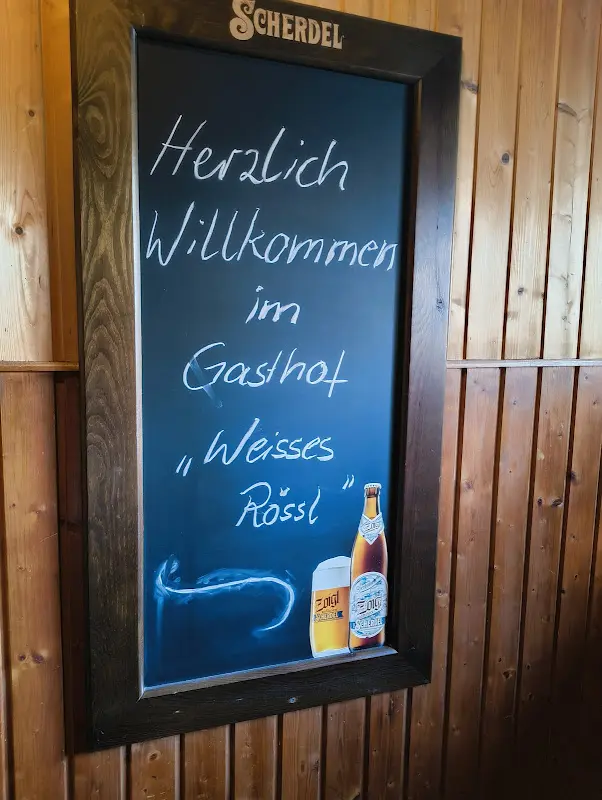 SCHERDEL
Herzlich
Willkommen
im
Gasthof
„Weisses
Rössl"
Zoigl
SCHERDEL
Zoigl
SCHERDEL